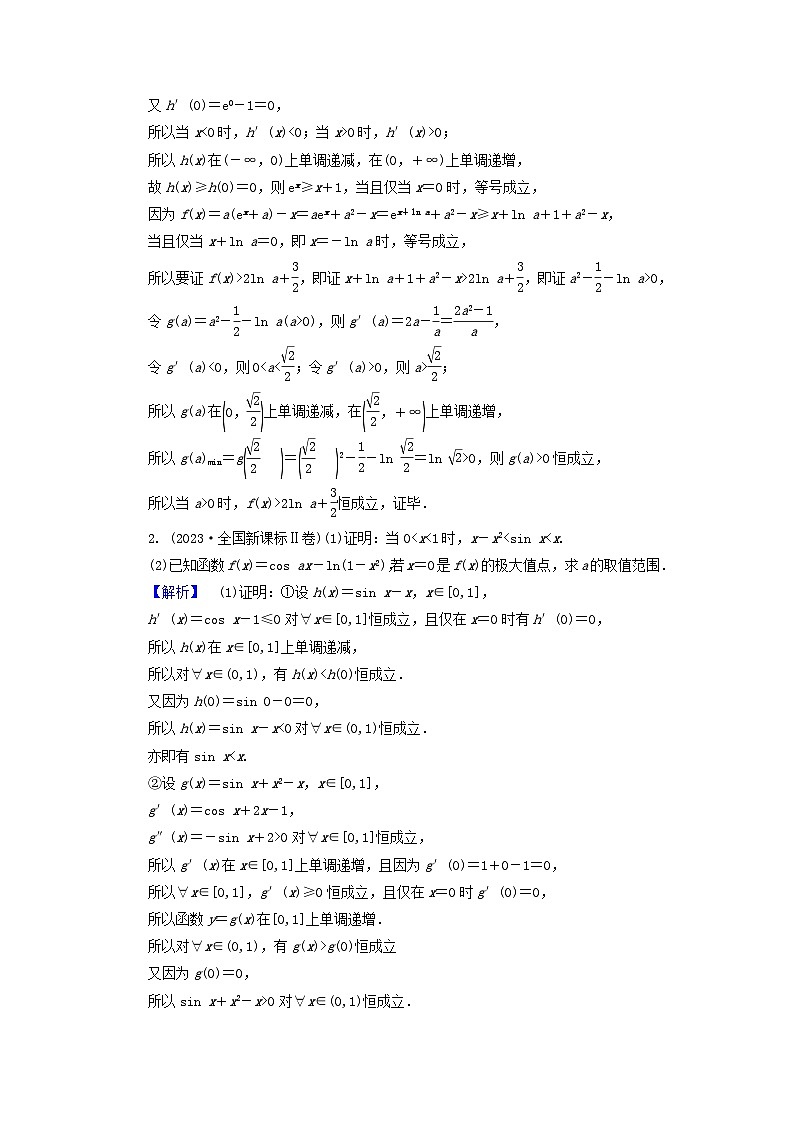 又 h′(0)=e⁰-1=0,
所以当 x<0时, h′(x)<0;当 x>0时, h′(x)>0;
所以 h(x)在(-∞,0)上单调递减,在(0,+∞)上单调递增,
故 h(x)≥h(0)=0,则 eˣ≥x+1,当且仅当 x=0 时,等号成立,
因为 f(x)=a(eˣ+a)-x=aeˣ+a²-x=e^{x+ln a}+a²-x≥x+ln a+1+a²-x,
当且仅当 x+ln a=0,即 x=-ln a 时,等号成立,
所以要证 f(x)>2ln a+\frac{3}{2},即证 x+ln a+1+a²-x>2ln a+\frac{3}{2},即证 a²-\frac{1}{2}-ln a>0,
令 g(a)=a²-\frac{1}{2}-ln a(a>0),则 g′(a)=2a-\frac{1}{a}=\frac{2a²-1}{a},
令 g′(a)<0,则 0<a<\frac{\sqrt{2}}{2};令 g′(a)>0,则 a>\frac{\sqrt{2}}{2};
所以 g(a)在(0,\frac{\sqrt{2}}{2})上单调递减,在(\frac{\sqrt{2}}{2},+∞)上单调递增,
所以 g(a)_{min}=g(\frac{\sqrt{2}}{2})=(\frac{\sqrt{2}}{2})²-\frac{1}{2}-ln \frac{\sqrt{2}}{2}=ln \sqrt{2}>0,则 g(a)>0 恒成立,
所以当 a>0时, f(x)>2ln a+\frac{3}{2}恒成立,证毕.
2. (2023·全国新课标Ⅱ卷)(1)证明:当 0<x<1时, x-x²<sin x<x.
(2)已知函数 f(x)=cos ax-ln(1-x²),若 x=0 是 f(x)的极大值点,求 a 的取值范围.
【解析】 (1)证明:①设 h(x)=sin x-x, x∈[0,1],
h′(x)=cos x-1≤0 对∀x∈[0,1]恒成立,且仅在 x=0 时有 h′(0)=0,
所以 h(x)在 x∈[0,1]上单调递减,
所以对∀x∈(0,1),有 h(x)<h(0)恒成立.
又因为 h(0)=sin 0-0=0,
所以 h(x)=sin x-x<0 对∀x∈(0,1)恒成立.
亦即有 sin x<x.
②设 g(x)=sin x+x²-x, x∈[0,1],
g′(x)=cos x+2x-1,
g″(x)=-sin x+2>0 对∀x∈[0,1]恒成立,
所以 g′(x)在 x∈[0,1]上单调递增,且因为 g′(0)=1+0-1=0,
所以∀x∈[0,1], g′(x)≥0 恒成立,且仅在 x=0 时 g′(0)=0,
所以函数 y=g(x)在[0,1]上单调递增.
所以对∀x∈(0,1),有 g(x)>g(0)恒成立
又因为 g(0)=0,
所以 sin x+x²-x>0 对∀x∈(0,1)恒成立.